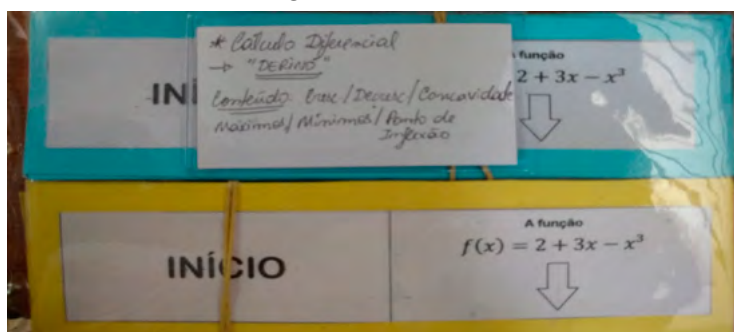 * Cálculo Diferencial
→ "DERINÓ"
Conteúdo: Cresc/Decresc/Concavidade
Máximos/Mínimos/Ponto de
Inflexão
INÍ
função
2 + 3x − x³
INÍCIO
A função
f(x) = 2 + 3x − x³